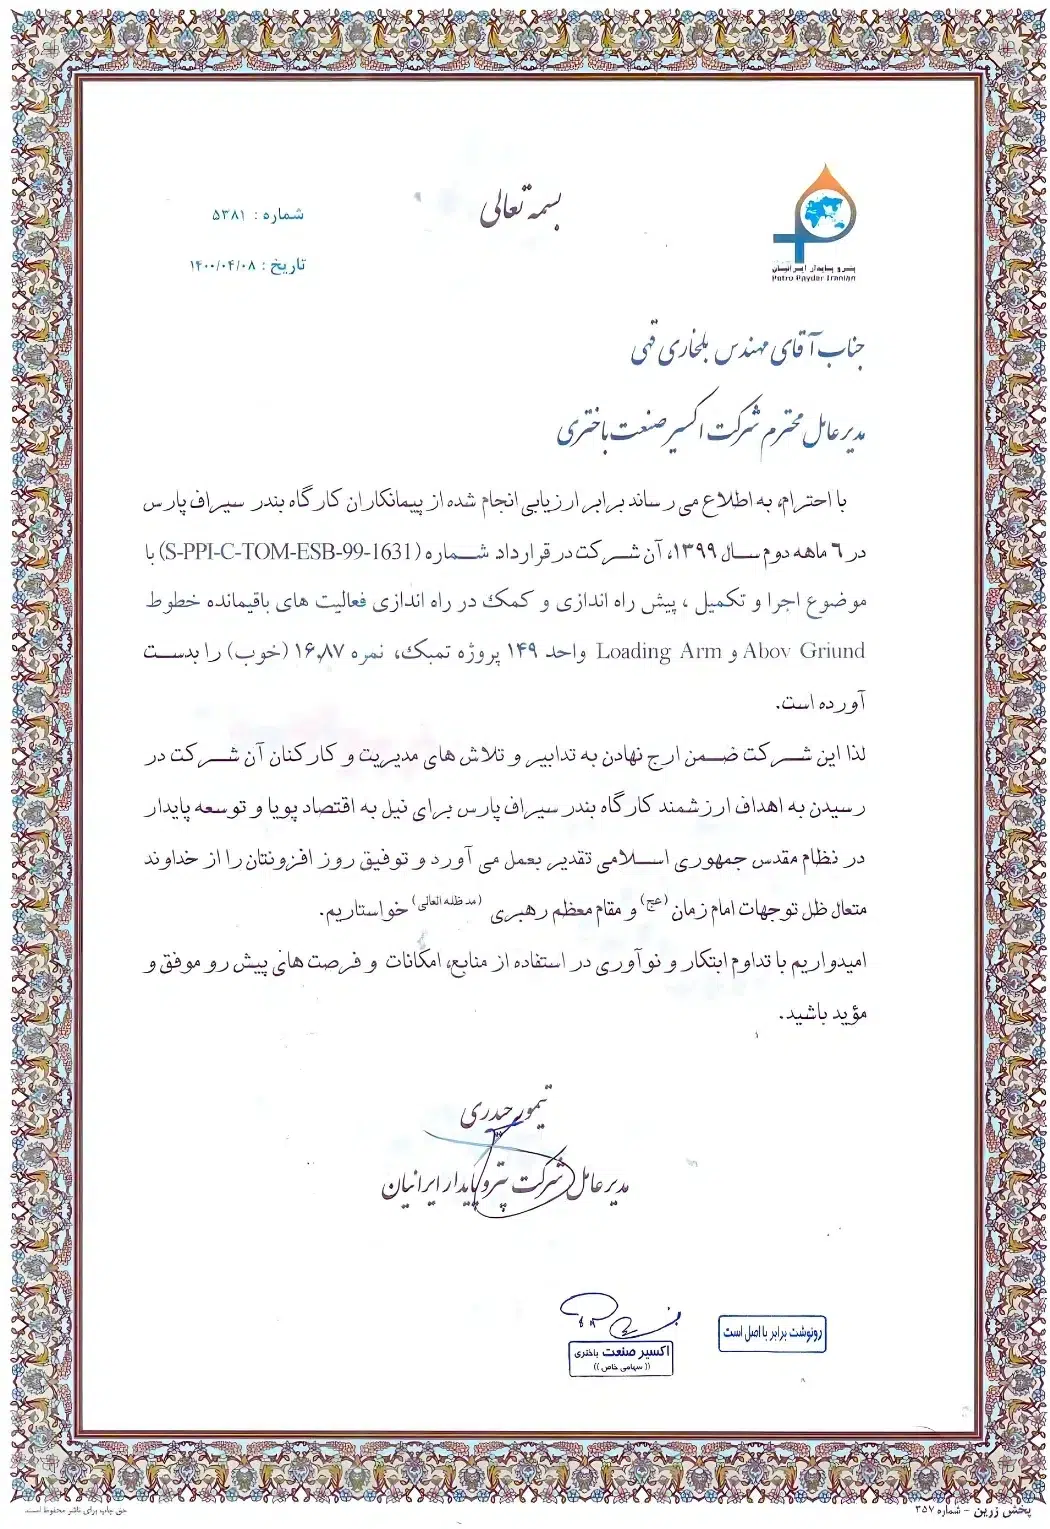 بسمه تعالی
شماره : ۵۳۸۱
تاریخ : ۱۴۰۰/۰۴/۰۸
پترو پایدار ایرانیان
Petro Paydar Iranian
جناب آقای مهندس بلخاری قهی
مدیرعامل محترم شرکت اکسیر صنعت باختری
با احترام، به اطلاع می رساند برابر ارزیابی انجام شده از پیمانکاران کارگاه بندر سیراف پارس
در ۶ ماهه دوم سال ۱۳۹۹، آن شرکت در قرارداد شماره (S-PPI-C-TOM-ESB-99-1631) با
موضوع اجرا و تکمیل ، پیش راه اندازی و کمک در راه اندازی فعالیت های باقیمانده خطوط
Abov Griund و Loading Arm واحد ۱۴۹ پروژه تمبک، نمره ۱۶٫۸۷ (خوب) را بدست
آورده است.
لذا این شرکت ضمن ارج نهادن به تدابیر و تلاش های مدیریت و کارکنان آن شرکت در
رسیدن به اهداف ارزشمند کارگاه بندر سیراف پارس برای نیل به اقتصاد پویا و توسعه پایدار
در نظام مقدس جمهوری اسلامی تقدیر بعمل می آورد و توفیق روز افزونتان را از خداوند
متعال ظل توجهات امام زمان (عج) و مقام معظم رهبری (مد ظله العالی) خواستاریم.
امیدواریم با تداوم ابتکار و نوآوری در استفاده از منابع، امکانات و فرصت های پیش رو موفق و
مؤید باشید.
تیمور حیدری
مدیرعامل شرکت پترو پایدار ایرانیان
رونوشت برابر با اصل است
اکسیر صنعت باختری
(( سهامی خاص ))
پخش زرین - شماره ۳۵۷
حق چاپ برای ناشر محفوظ است